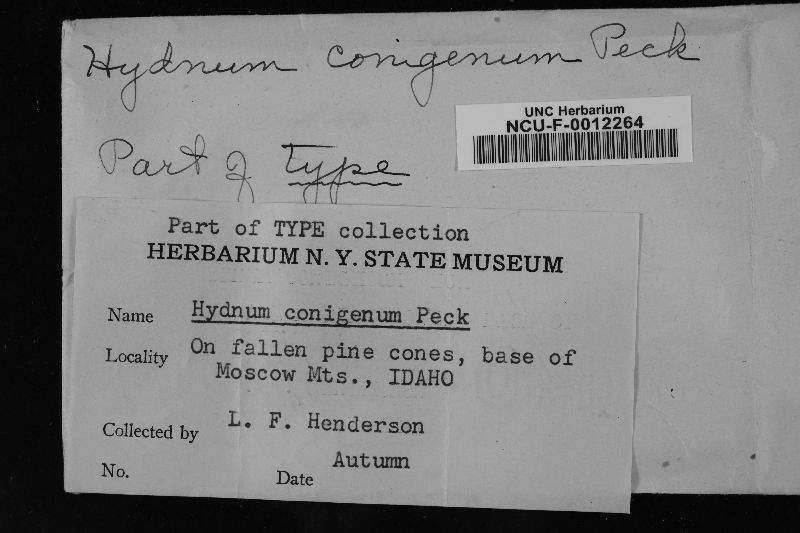 Hydnum conigenum Peck
UNC Herbarium
NCU-F-0012264
Part of type
Part of TYPE collection
HERBARIUM N. Y. STATE MUSEUM
Name Hydnum conigenum Peck
Locality On fallen pine cones, base of
Moscow Mts., IDAHO
Collected by L. F. Henderson
No. Date Autumn